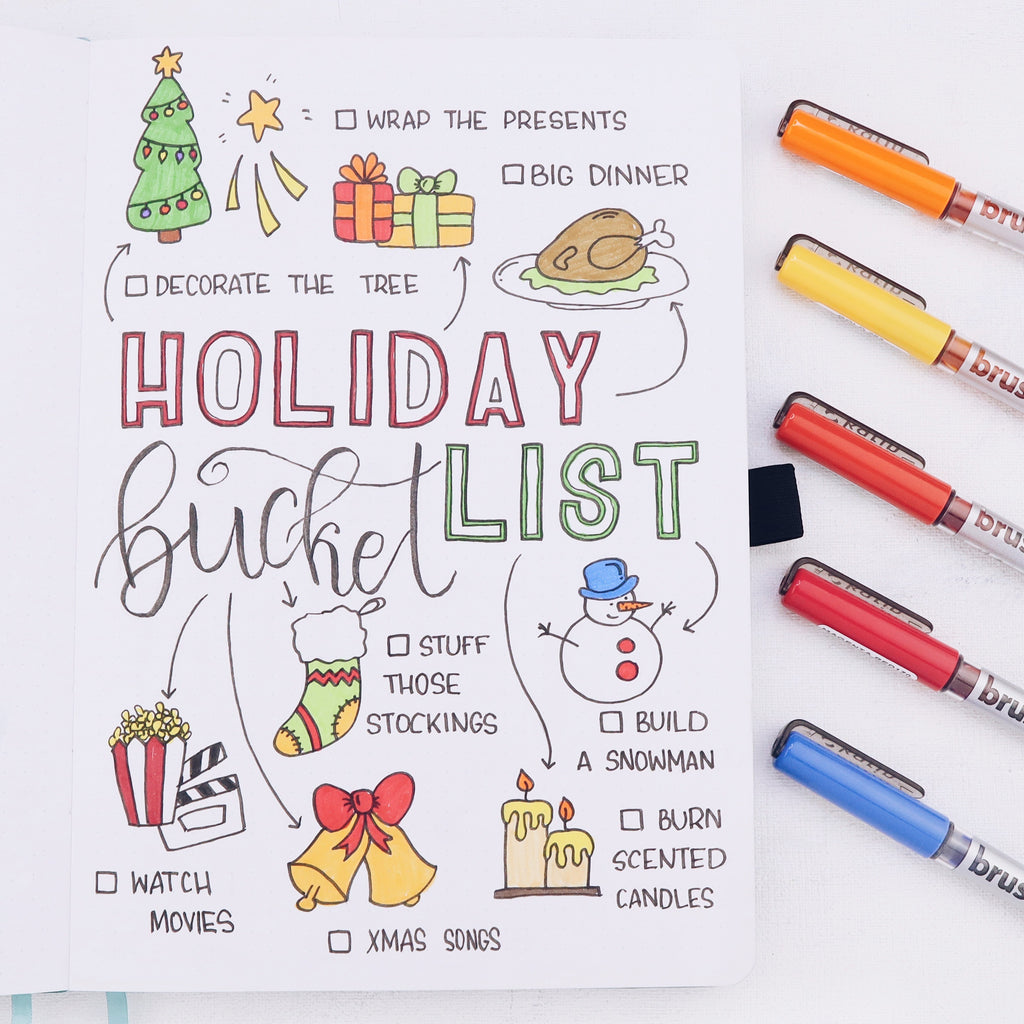 ☐ WRAP THE PRESENTS
☐ BIG DINNER
☐ DECORATE THE TREE
HOLIDAY
bucket LIST
☐ STUFF
THOSE
STOCKINGS
☐ BUILD
A SNOWMAN
☐ BURN
SCENTED
CANDLES
☐ WATCH
MOVIES
☐ XMAS SONGS
bru
brus
brus
bru
brus